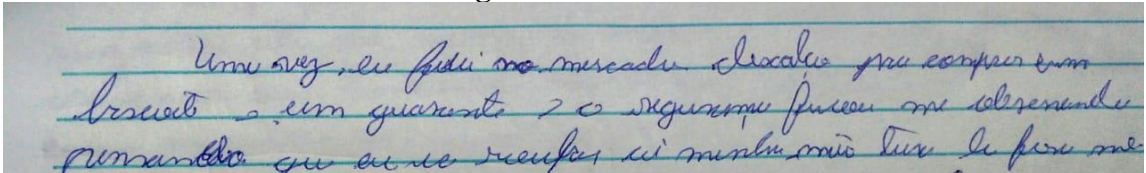 Uma vez, eu fui no mercado descalço pra comprar um
biscoito e um guaraná e o segurança ficou me observando
pensando que eu ia roubar ai minha mãe tava la fora me